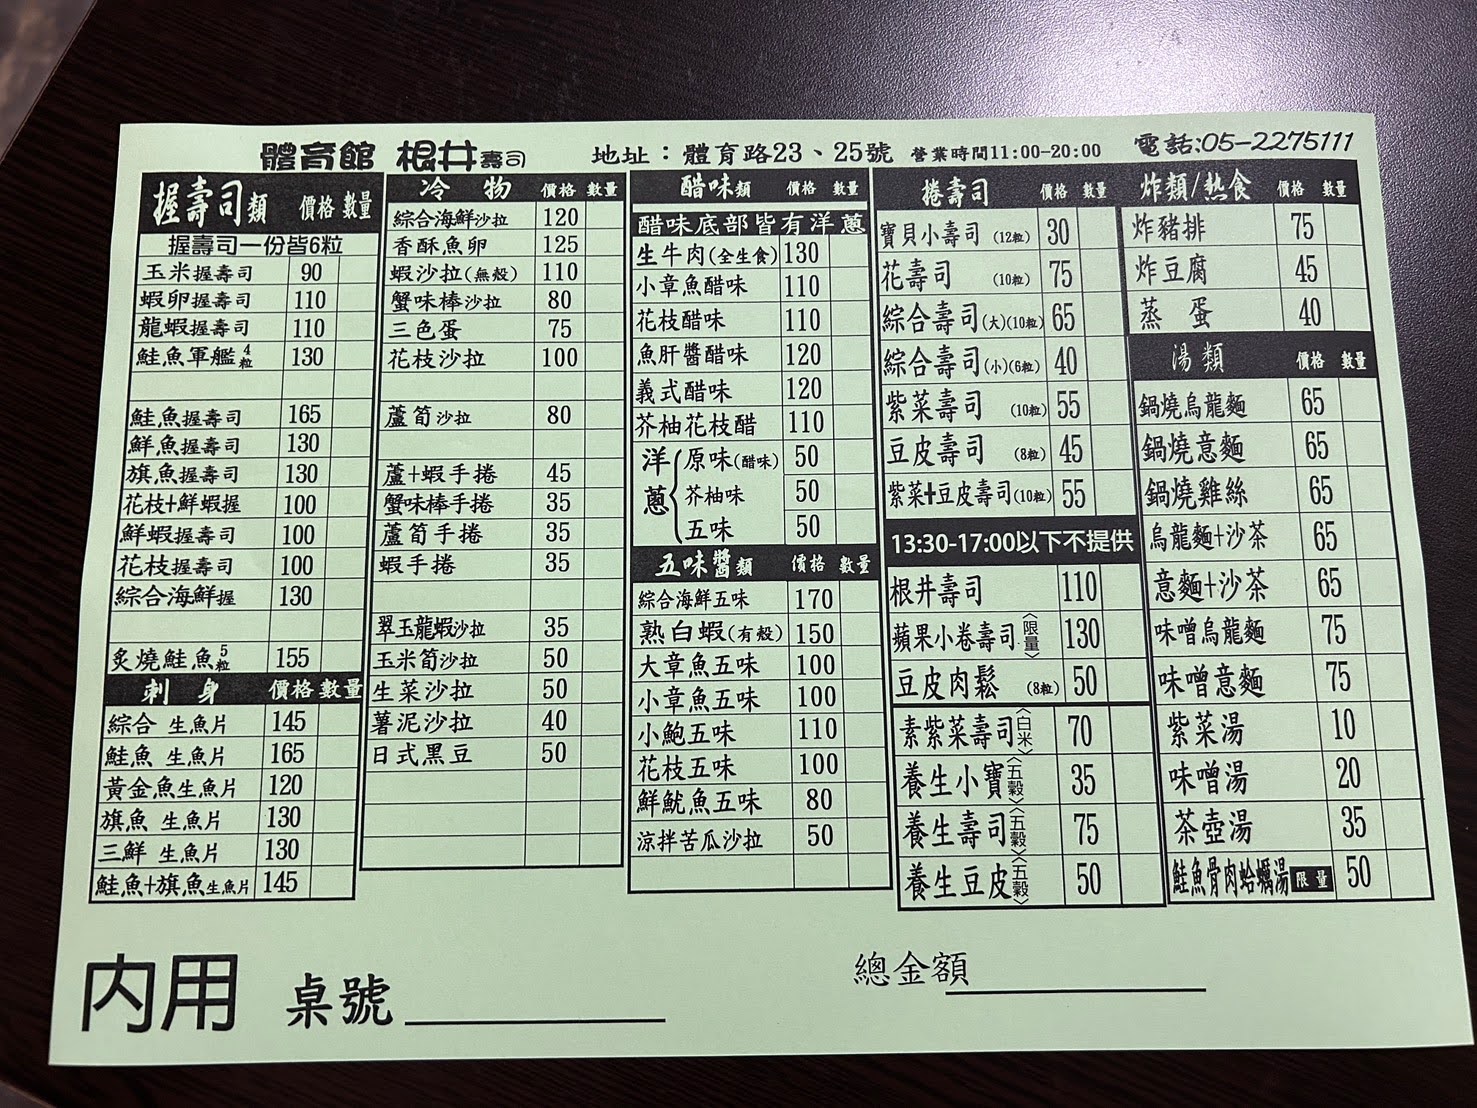 體育館 根井壽司 地址：體育路23、25號 營業時間11:00-20:00 電話:05-2275111
握壽司類 價格 數量
握壽司一份皆6粒
玉米握壽司 90
蝦卵握壽司 110
龍蝦握壽司 110
鮭魚軍艦4粒 130
鮭魚握壽司 165
鮮魚握壽司 130
旗魚握壽司 130
花枝+鮮蝦握 100
鮮蝦握壽司 100
花枝握壽司 100
綜合海鮮握 130
炙燒鮭魚5粒 155
刺身 價格 數量
綜合 生魚片 145
鮭魚 生魚片 165
黃金魚生魚片 120
旗魚 生魚片 130
三鮮 生魚片 130
鮭魚+旗魚生魚片 145
冷物 價格 數量
綜合海鮮沙拉 120
香酥魚卵 125
蝦沙拉(無殼) 110
蟹味棒沙拉 80
三色蛋 75
花枝沙拉 100
蘆筍沙拉 80
蘆+蝦手捲 45
蟹味棒手捲 35
蘆筍手捲 35
蝦手捲 35
翠玉龍蝦沙拉 35
玉米筍沙拉 50
生菜沙拉 50
薯泥沙拉 40
日式黑豆 50
醋味類 價格 數量
醋味底部皆有洋蔥
生牛肉(全生食) 130
小章魚醋味 110
花枝醋味 110
魚肝醬醋味 120
義式醋味 120
芥柚花枝醋 110
洋蔥 原味(醋味) 50
芥柚味 50
五味 50
五味醬類 價格 數量
綜合海鮮五味 170
熟白蝦(有殼) 150
大章魚五味 100
小章魚五味 100
小鮑五味 110
花枝五味 100
鮮魷魚五味 80
涼拌苦瓜沙拉 50
捲壽司 價格 數量
寶貝小壽司 (12粒) 30
花壽司 (10粒) 75
綜合壽司(大)(10粒) 65
綜合壽司(小)(6粒) 40
紫菜壽司 (10粒) 55
豆皮壽司 (8粒) 45
紫菜+豆皮壽司(10粒) 55
13:30-17:00以下不提供
根井壽司 110
蘋果小卷壽司〈限量〉 130
豆皮肉鬆 (8粒) 50
素紫菜壽司〈白米〉 70
養生小寶〈五穀〉 35
養生壽司〈五穀〉 75
養生豆皮〈五穀〉 50
炸類/熱食 價格 數量
炸豬排 75
炸豆腐 45
蒸蛋 40
湯類 價格 數量
鍋燒烏龍麵 65
鍋燒意麵 65
鍋燒雞絲 65
烏龍麵+沙茶 65
意麵+沙茶 65
味噌烏龍麵 75
味噌意麵 75
紫菜湯 10
味噌湯 20
茶壺湯 35
鮭魚骨肉蛤蠣湯 限量 50
內用 桌號 總金額